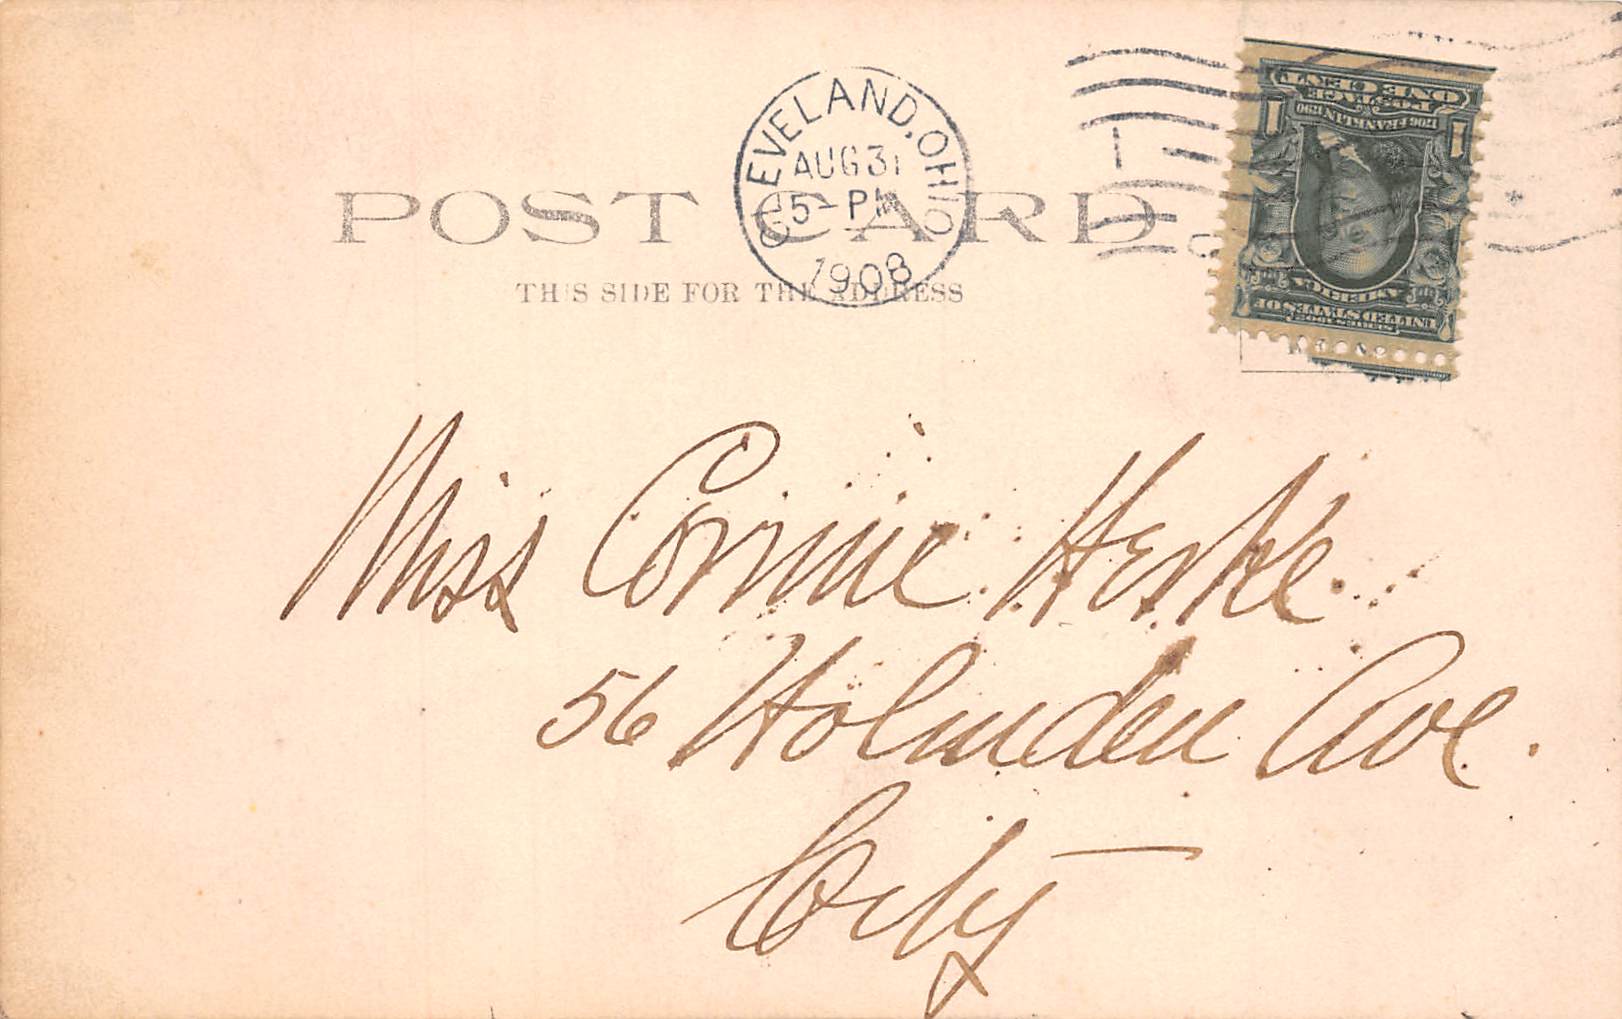 POST CARD
THIS SIDE FOR THE ADDRESS
CLEVELAND, OHIO
AUG 31
5 - PM
1908
1
SERIES 1902
UNITED STATES OF
AMERICA
1706 FRANKLIN 1790
POSTAGE
ONE CENT
1 1
Miss Corinne Heske.
56 Holmden Ave.
City